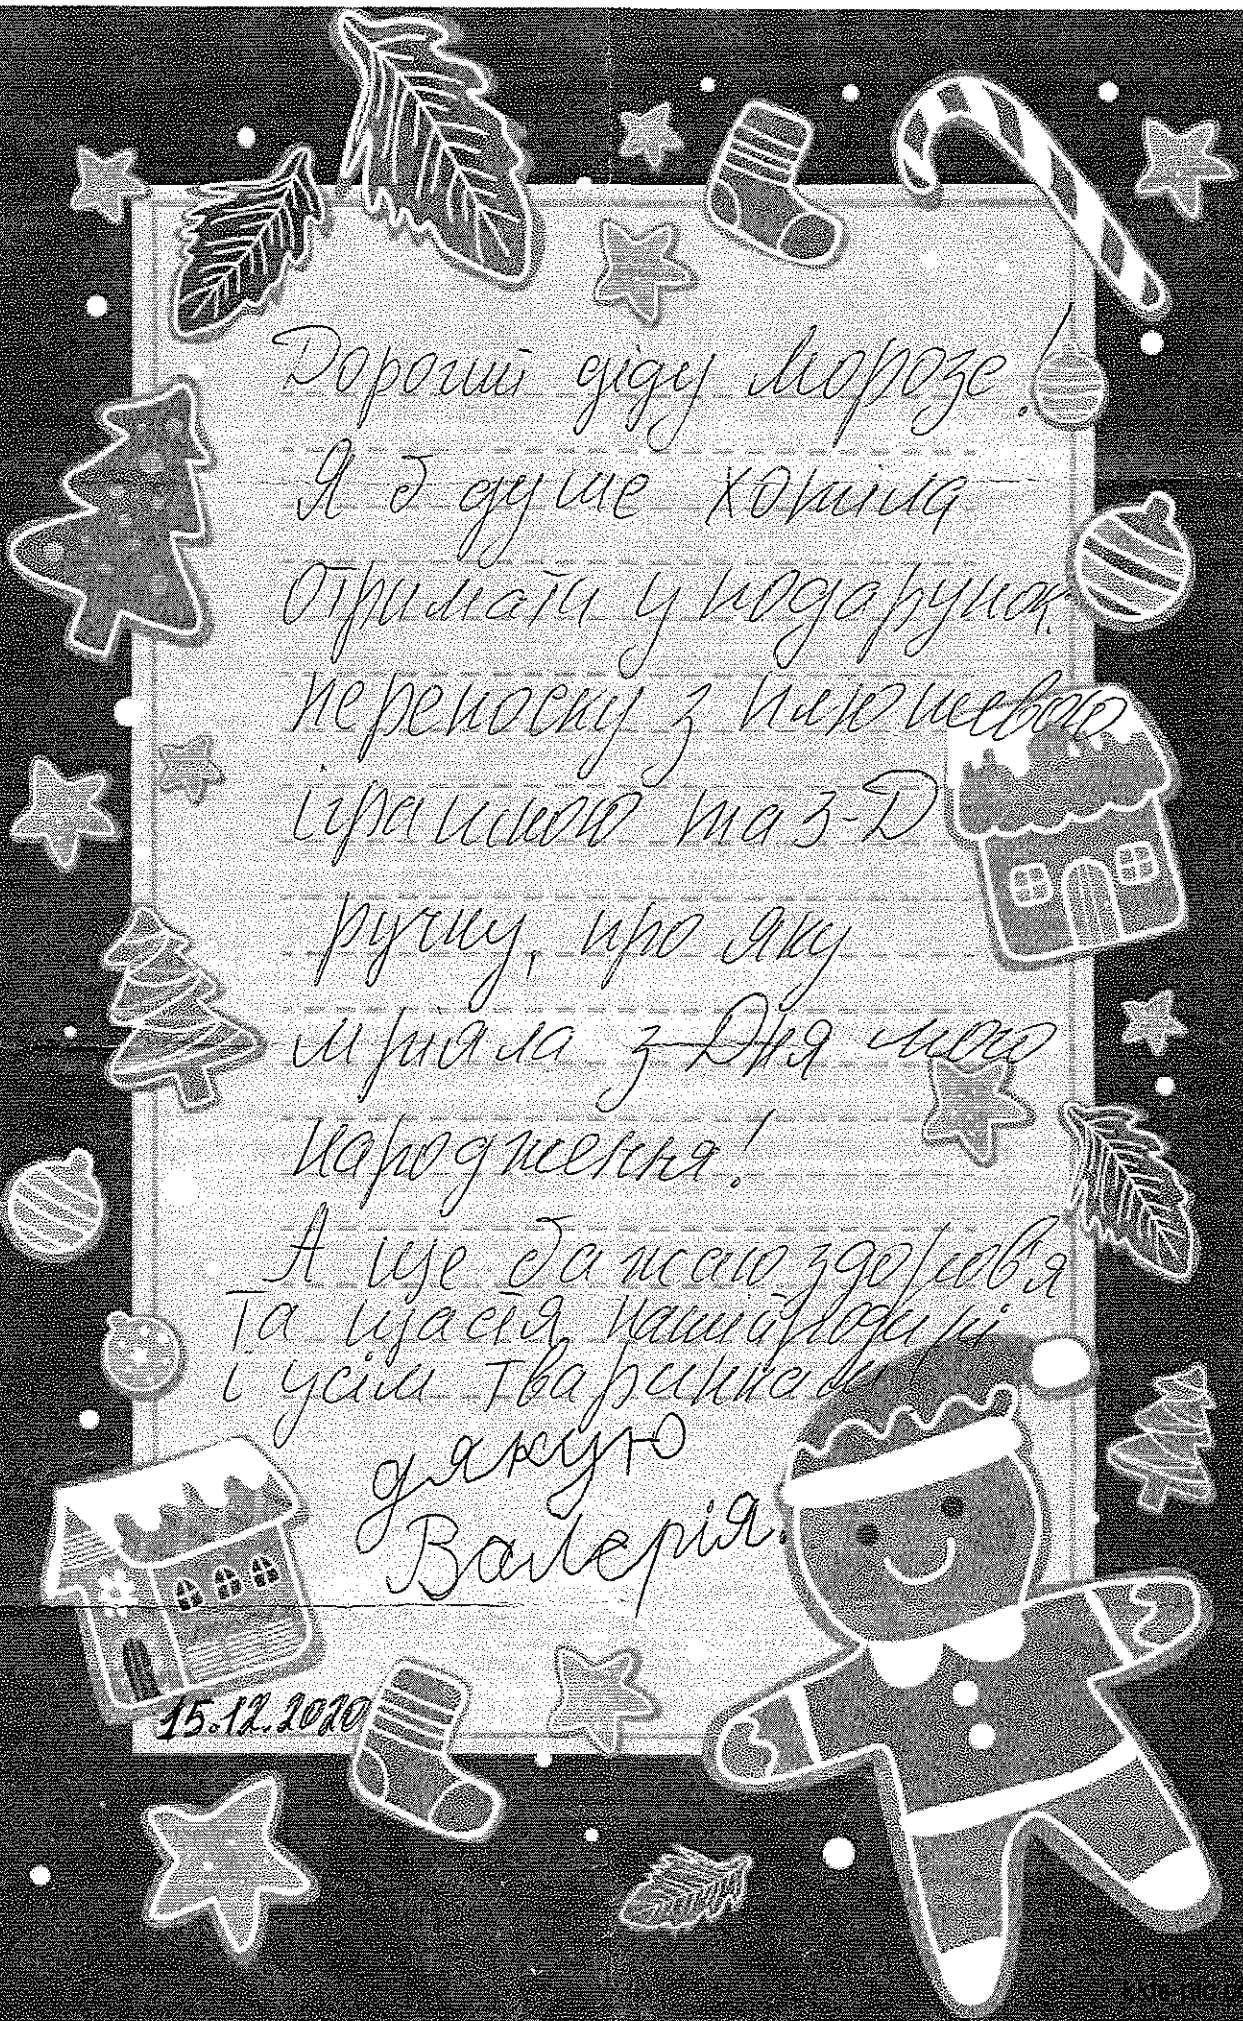 Дорогий діду Морозе!
Я б дуже хотіла
отримати у подарунок
переноску з плюшевою
іграшкою та 3-D
ручку, про яку
мріяла з Дня мого
народження!
А ще бажаю здоров'я
та щастя нашій родині
і усім тваринкам
дякую
Валерія.
15.12.2020